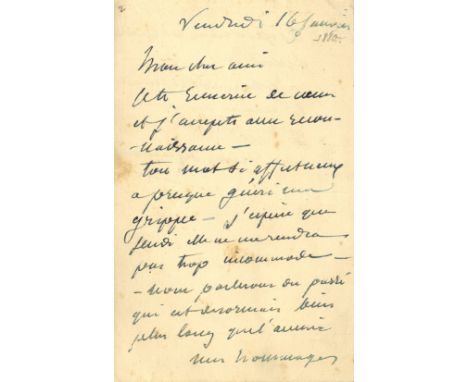 2
Vendredi 16 Janvier
Mon cher ami
de cœur
et j'accepte avec recon-
naissance —
ton mot si affectueux
a presque guéri ma
grippe — j'espère que
jeudi elle ne me rendra
pas trop incommode —
— nous parlerons du passé
qui est désormais bien
plus long que l'avenir
mes hommages